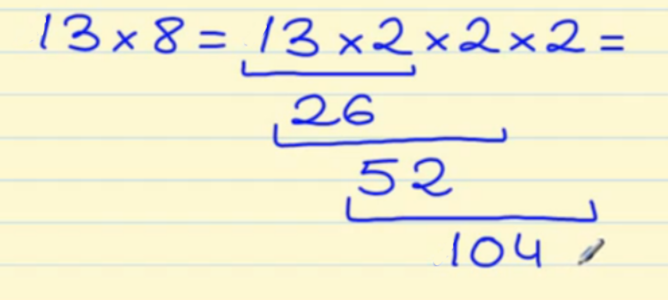 13×8 = 13×2×2×2 =
26
52
104